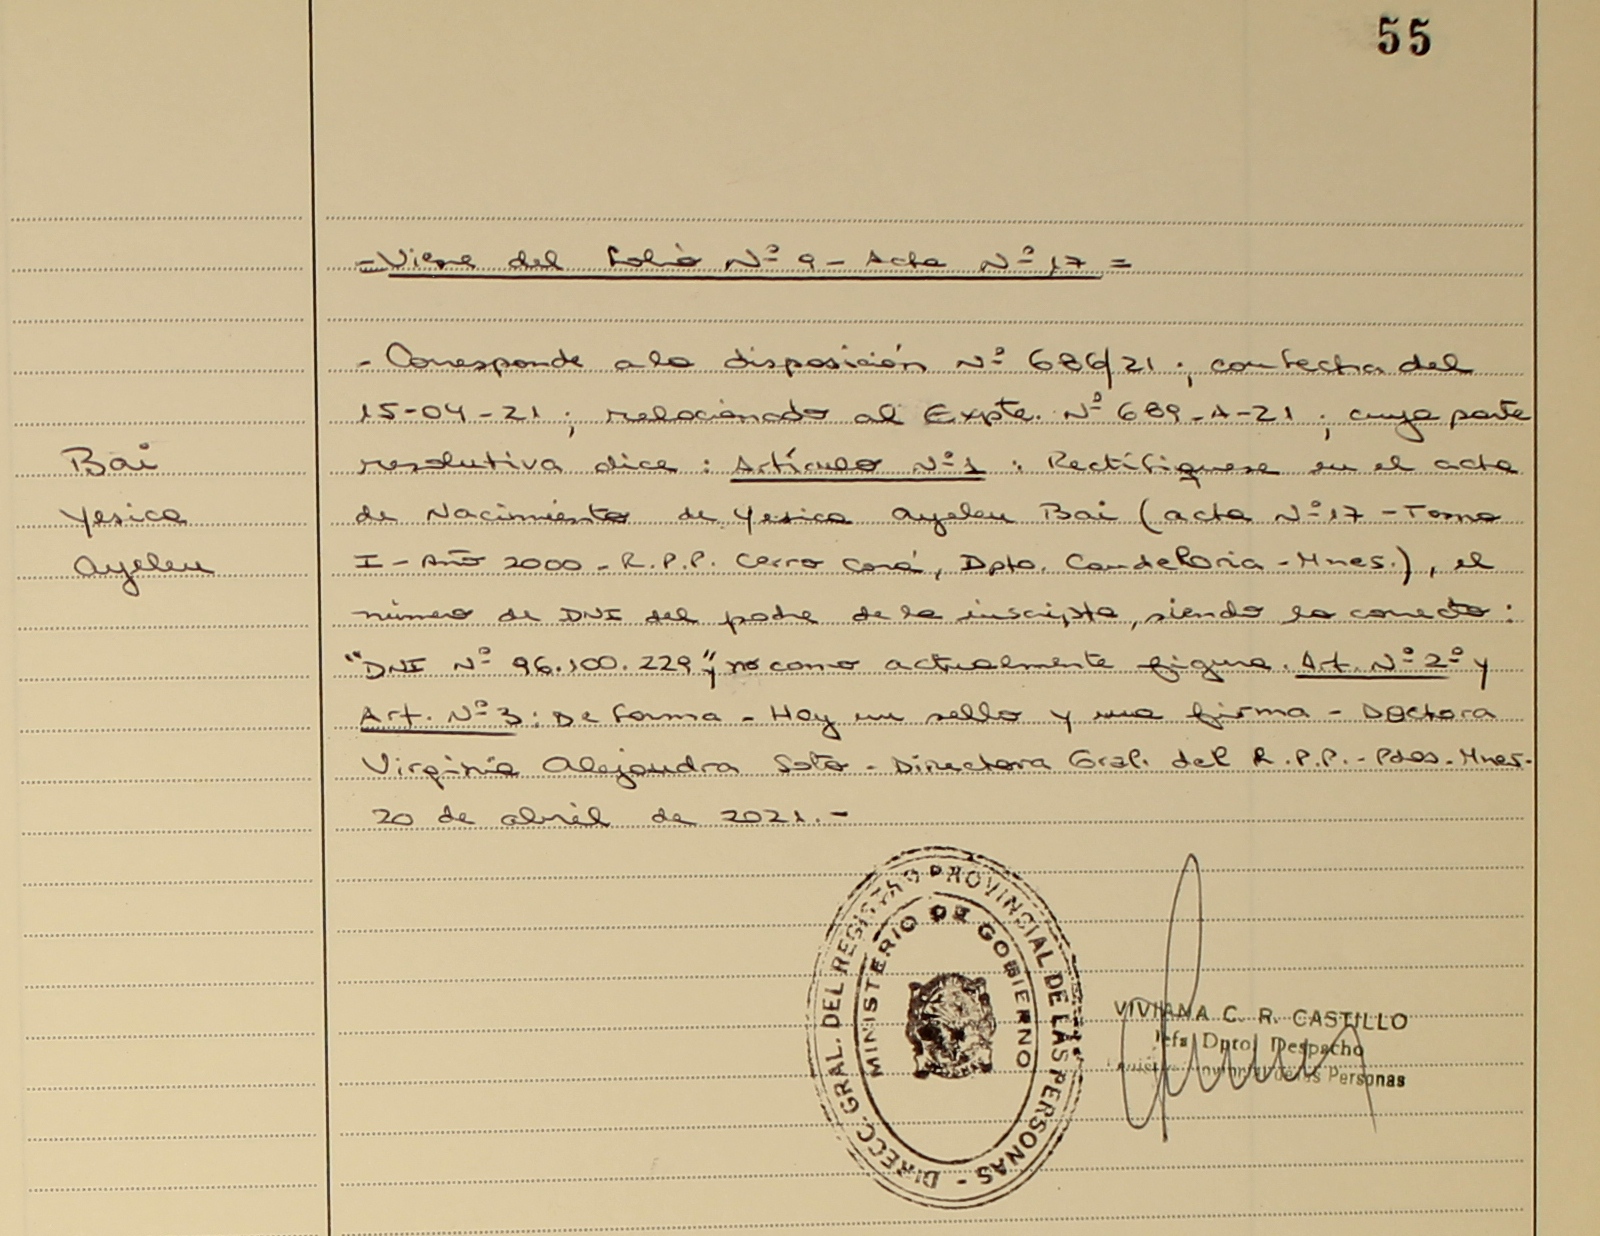 55
-Viene del Folio Nº 9 - Acta Nº 17 =
- Corresponde a la disposición Nº 686/21; con fecha del
15-04-21; relacionado al Expte. Nº 689-A-21; cuya parte
resolutiva dice: Artículo Nº 1: Rectifíquese en el acta
de Nacimiento de Yesica Ayelen Bai (acta Nº 17 - Tomo
I - Año 2000 - R.P.P. Cerro Corá, Dpto. Candelaria - Mnes.), el
número de DNI del padre de la inscipta, siendo lo correcto:
"DNI Nº 96.100.229" y no como actualmente figura. Art. Nº 2º y
Art. Nº 3: De forma - Hay un sello y una firma - Doctora
Virginia Alejandra Soto - Directora Gral. del R.P.P. - Pdas. Mnes-
20 de abril de 2021.-
Bai
Yesica
Ayelen
DIRECC. GRAL. DEL REGISTRO PROVINCIAL DE LAS PERSONAS -
MINISTERIO DE GOBIERNO
VIVIANA C. R. CASTILLO
Jefa Dpto. Despacho
Personas